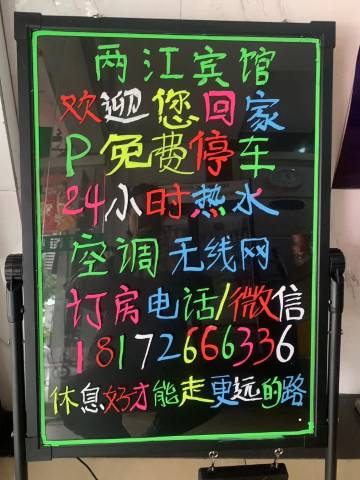 两江宾馆
欢迎您回家
P免费停车
24小时热水
空调无线网
订房电话/微信
18172666336
休息好才能走更远的路